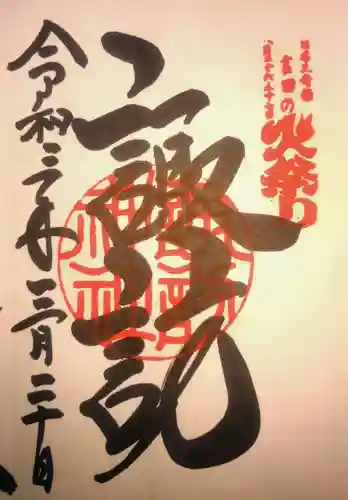 日本三奇祭
吉田の
火祭り
八月二十六日二十七日
諏訪
諏訪神社
令和三年三月二十日